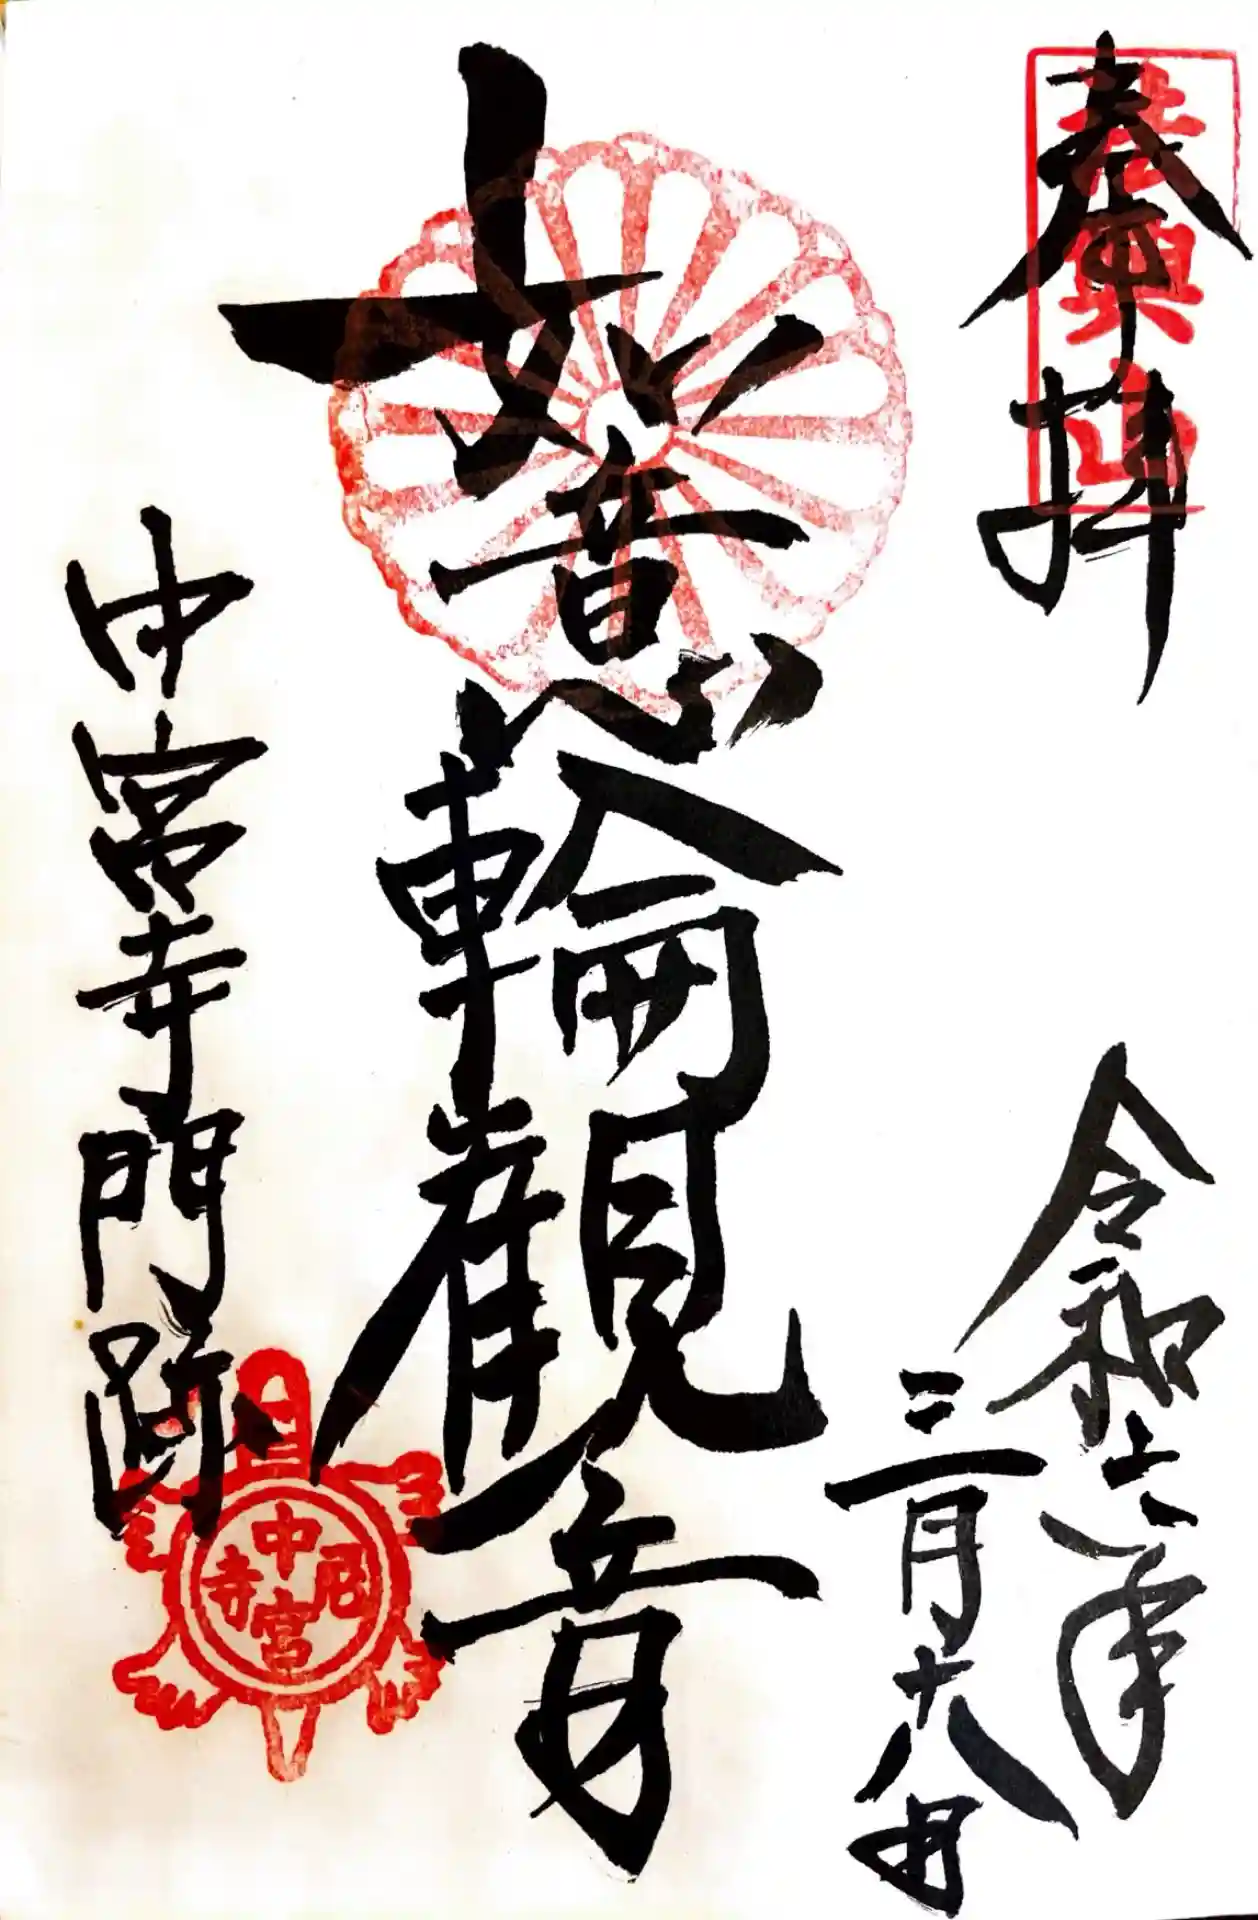 奉拝
法興山
令和六年
三月十八日
如意輪観音
中宮寺門跡
中宮尼寺